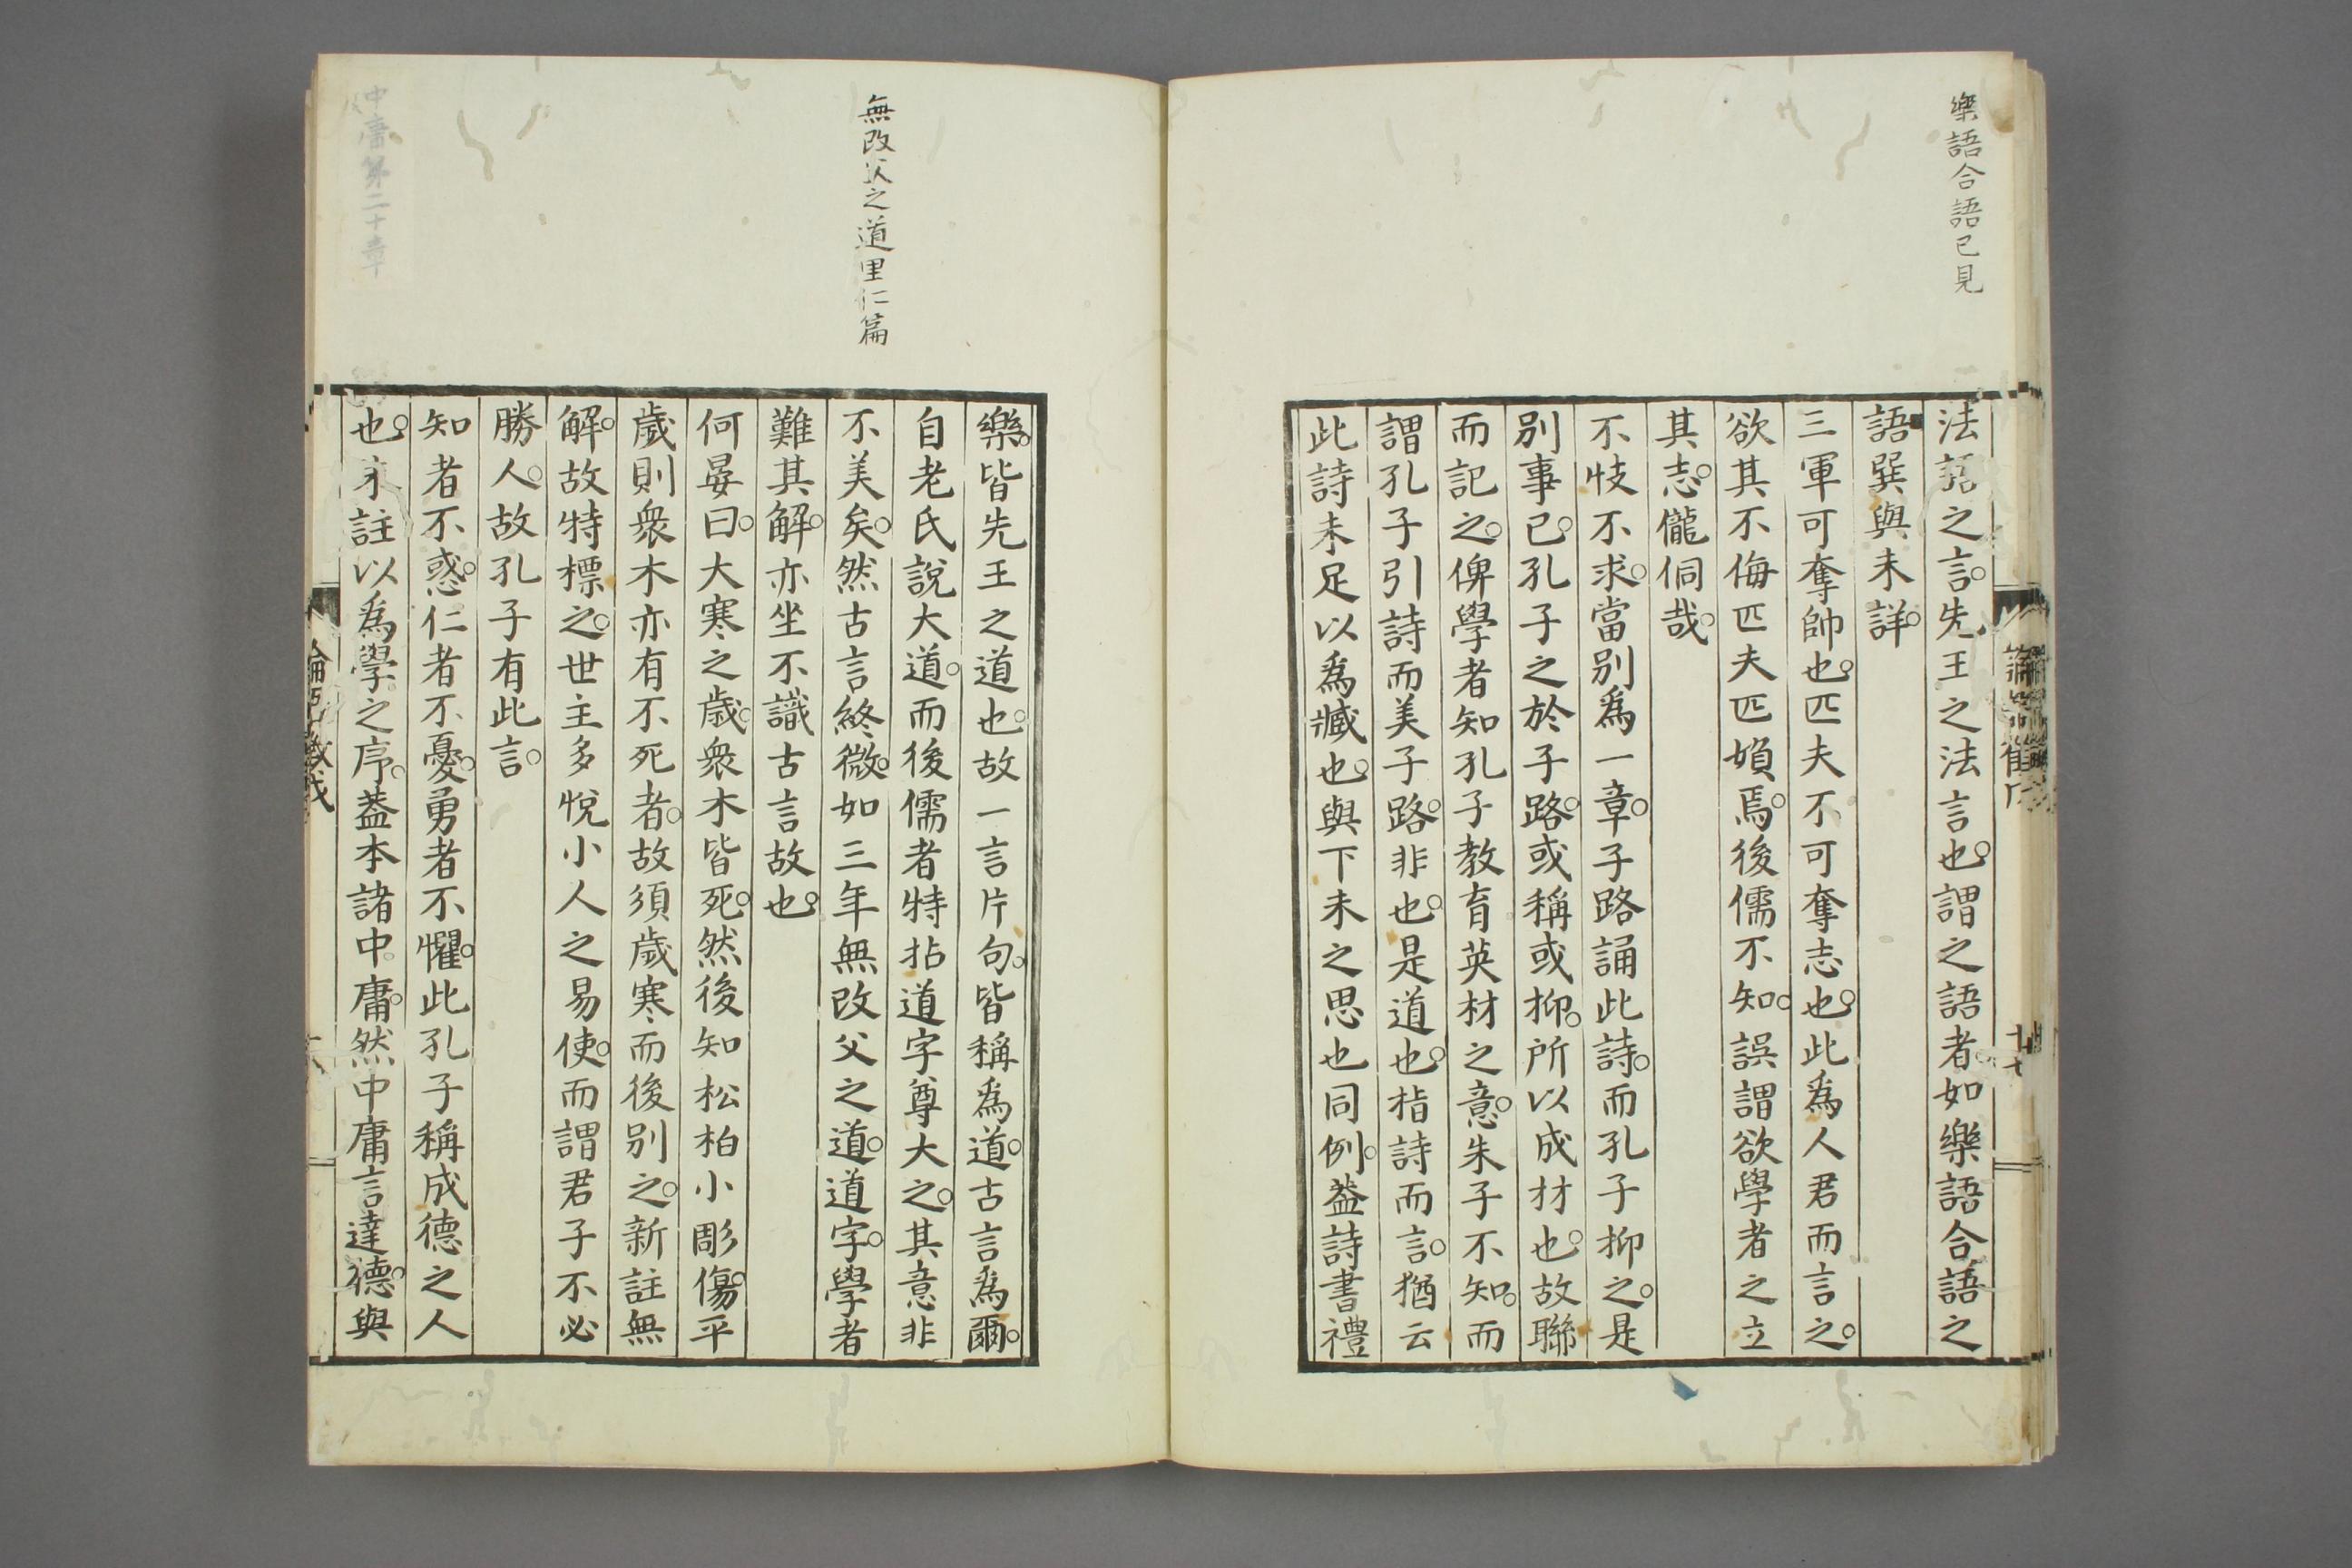 樂語合語已見
法語之言。先王之法言也。謂之語者如樂語合語之
語巽與未詳。
三軍可奪帥也。匹夫不可奪志也。此爲人君而言之。
欲其不侮匹夫匹婦焉。後儒不知。誤謂欲學者之立
其志。儱侗哉。
不忮不求。當別爲一章。子路誦此詩。而孔子抑之。是
別事已。孔子之於子路。或稱或抑。所以成材也。故聯
而記之。俾學者知孔子教育英材之意。朱子不知。而
謂孔子引詩而美子路。非也。是道也。指詩而言。猶云
此詩未足以爲臧也。與下未之思也同例。葢詩書禮
無改父之道里仁篇
樂。皆先王之道也。故一言片句。皆稱爲道。古言爲爾。
自老氏說大道。而後儒者特拈道字尊大之。其意非
不美矣。然古言終微。如三年無改父之道。道字。學者
難其解。亦坐不識古言故也。
何晏曰。大寒之歲。衆木皆死。然後知松柏小彫傷。平
歲則衆木亦有不死者。故須歲寒而後別之。新註無
解。故特標之。世主多悅小人之易使。而謂君子不必
勝人。故孔子有此言。
知者不惑。仁者不憂。勇者不懼。此孔子稱成德之人
也。朱註以爲學之序。葢本諸中庸。然中庸言達德。與
中庸第二十章